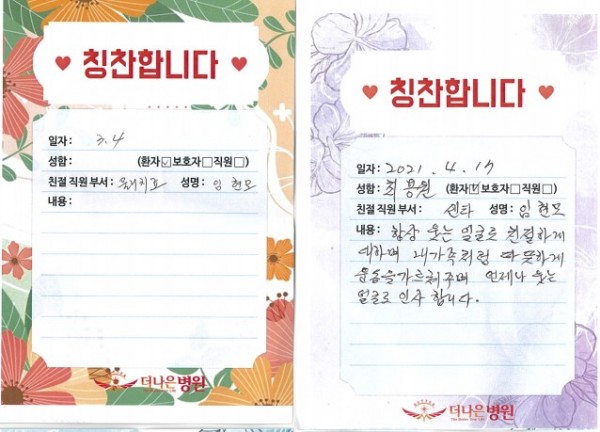 칭찬합니다
일자 : 3.4
성함 : (환자☑보호자☐직원☐)
친절 직원 부서 : 성명 : 임현모
내용 :
더나은병원
칭찬합니다
일자 : 2021. 4. 17
성함 : 최 웅원 (환자☑보호자☐직원☐)
친절 직원 부서 : 센타 성명 : 임현모
내용 : 항상 웃는 얼굴로 친절하게
대하며 내가족처럼 따뜻하게
운동을가르쳐주며 언제나 웃는
얼굴로 인사 합니다.
더나은병원